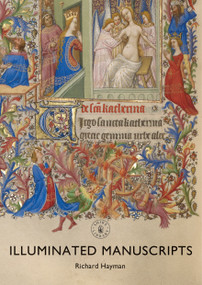 de scā katherina
Virgo sancta katherina
grecie gemma urbe alex
ILLUMINATED MANUSCRIPTS
Richard Hayman